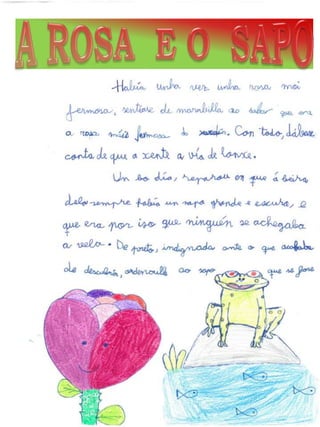 A ROSA E O SAPO
Había unha vez unha rosa moi
fermosa, sentíase de marabilla ao saber que era
a rosa máis fermosa do xardín. Con todo, dábase
conta de que a xente a vía de lonxe.
Un bo día, reparou en que á beira
dela sempre había un sapo grande e escuro, e
que era por iso que ninguén se achegaba
a vela. De pronto, indignada ante o que acababa
de descubrir, ordenoulle ao sapo que se fose